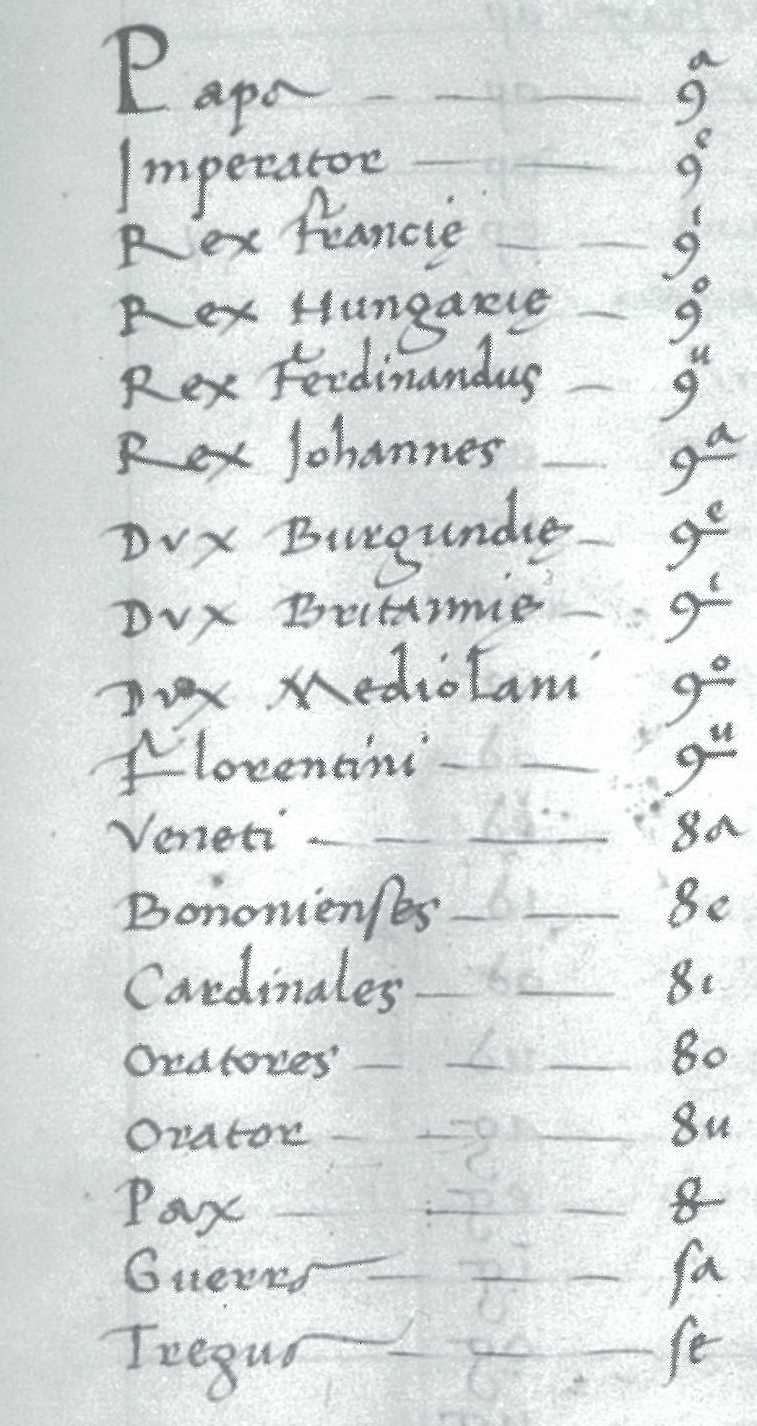 Papa — — — 9ᵃ
Imperator — — 9ᵉ
Rex francię — — 9ⁱ
Rex Hungarię — 9ᵒ
Rex Ferdinandus — 9ᵘ
Rex Johannes — 9ᵃ
Dvx Burgundię — 9ᵉ
Dvx Britannię — 9ⁱ
Dvx Mediolani 9ᵒ
Florentini — — 9ᵘ
Veneti — — — 8a
Bononienſes — — 8e
Cardinales — — 8i
Oratores — — — 8o
Orator — — — 8u
Pax — — — 8
Guerra — — — ſa
Tregua — — — ſe